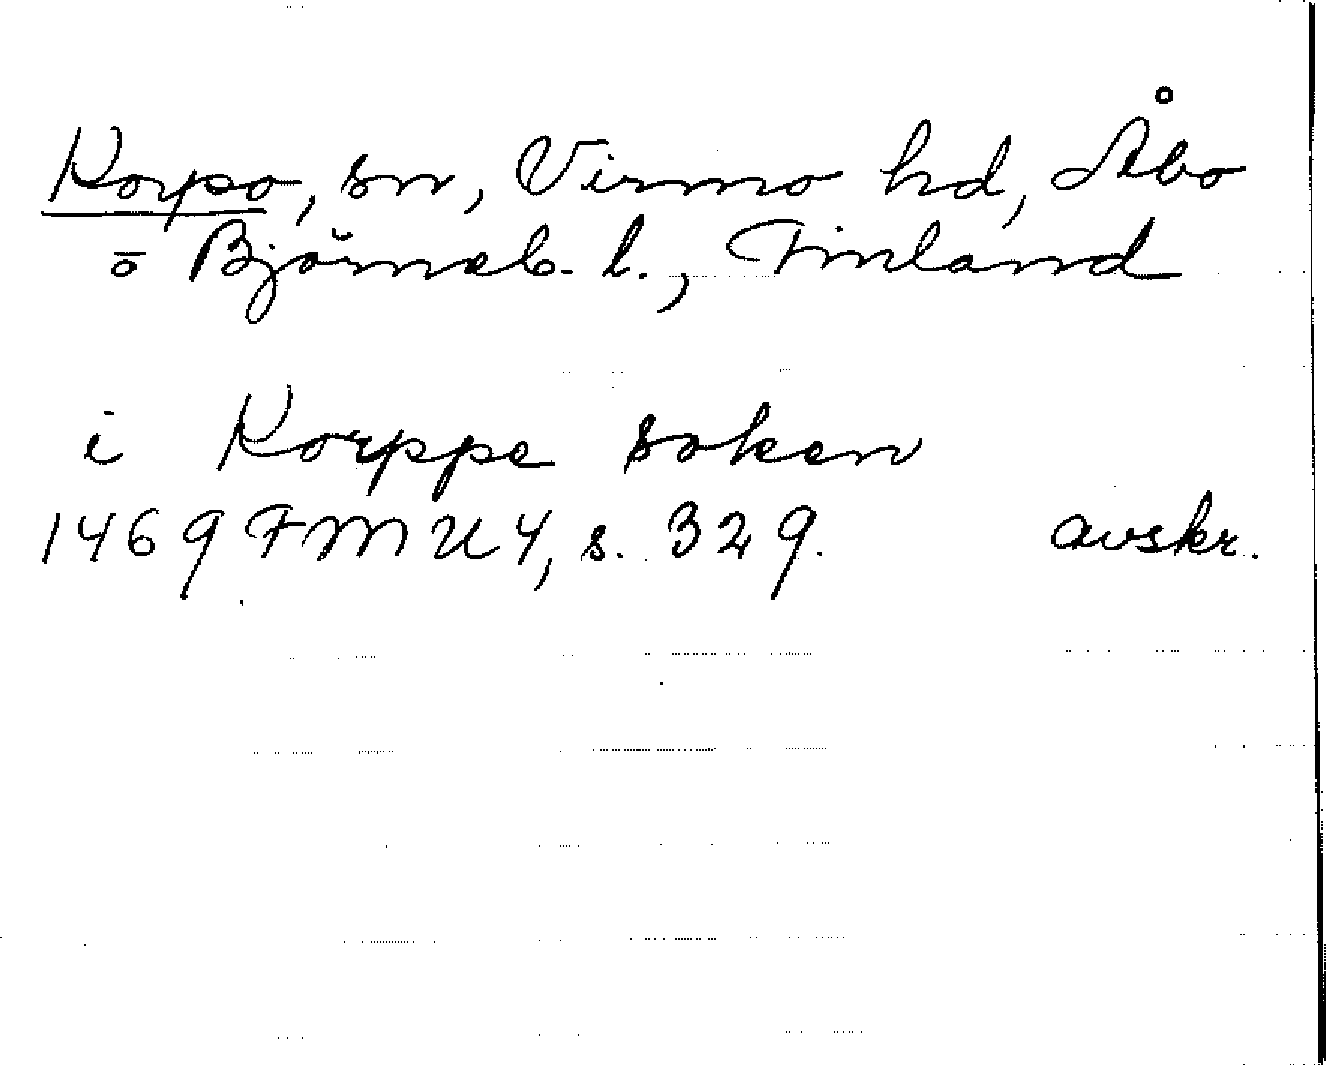 Korpo, sn, Virmo hd, Åbo
o Björneb. l., Finland
i Korppe soken
1469 FMU 4, s. 329. avskr.